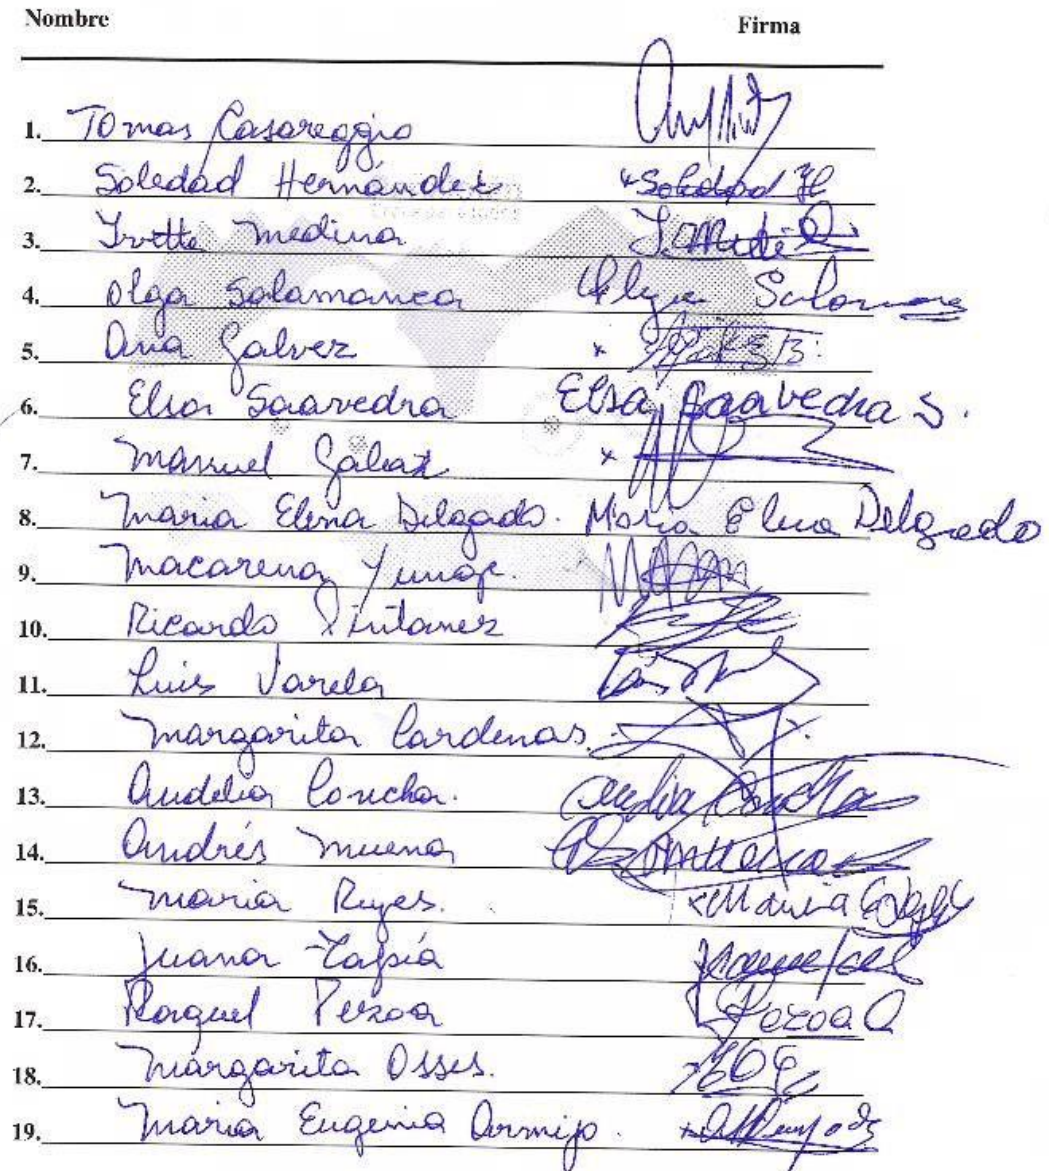 Nombre Firma
1. Tomas Casareggio
2. Soledad Hernández Soledad H
3. Ivette Medina
4. Olga Salamanca Olga
5. Ana Galvez
6. Elsa Saavedra Elsa Saavedra S.
7. Manuel
8. Maria Elena Delgado. Maria Elena Delgado
9. Macarena
10. Ricardo
11. Luis Varela Luis
12. Margarita Cardenas.
13. Audelia Concha.
14. Andrés Muena
15. Maria Reyes. Maria
16. Juana Tapia
17. Raquel Pezoa Pezoa
18. Margarita Osses.
19. Maria Eugenia Armijo.